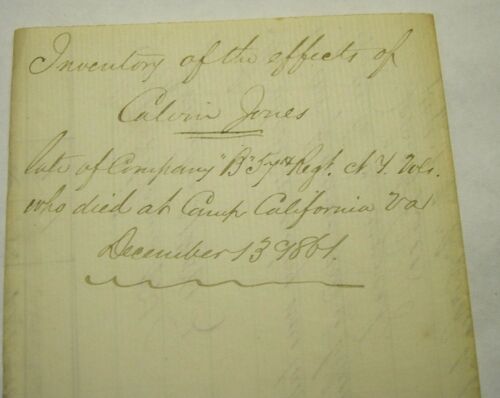 Inventory of the effects of
Calvin Jones
late of Company "B" 57th Regt. N.Y. Vols.
who died at Camp California Va
December 13 1861.